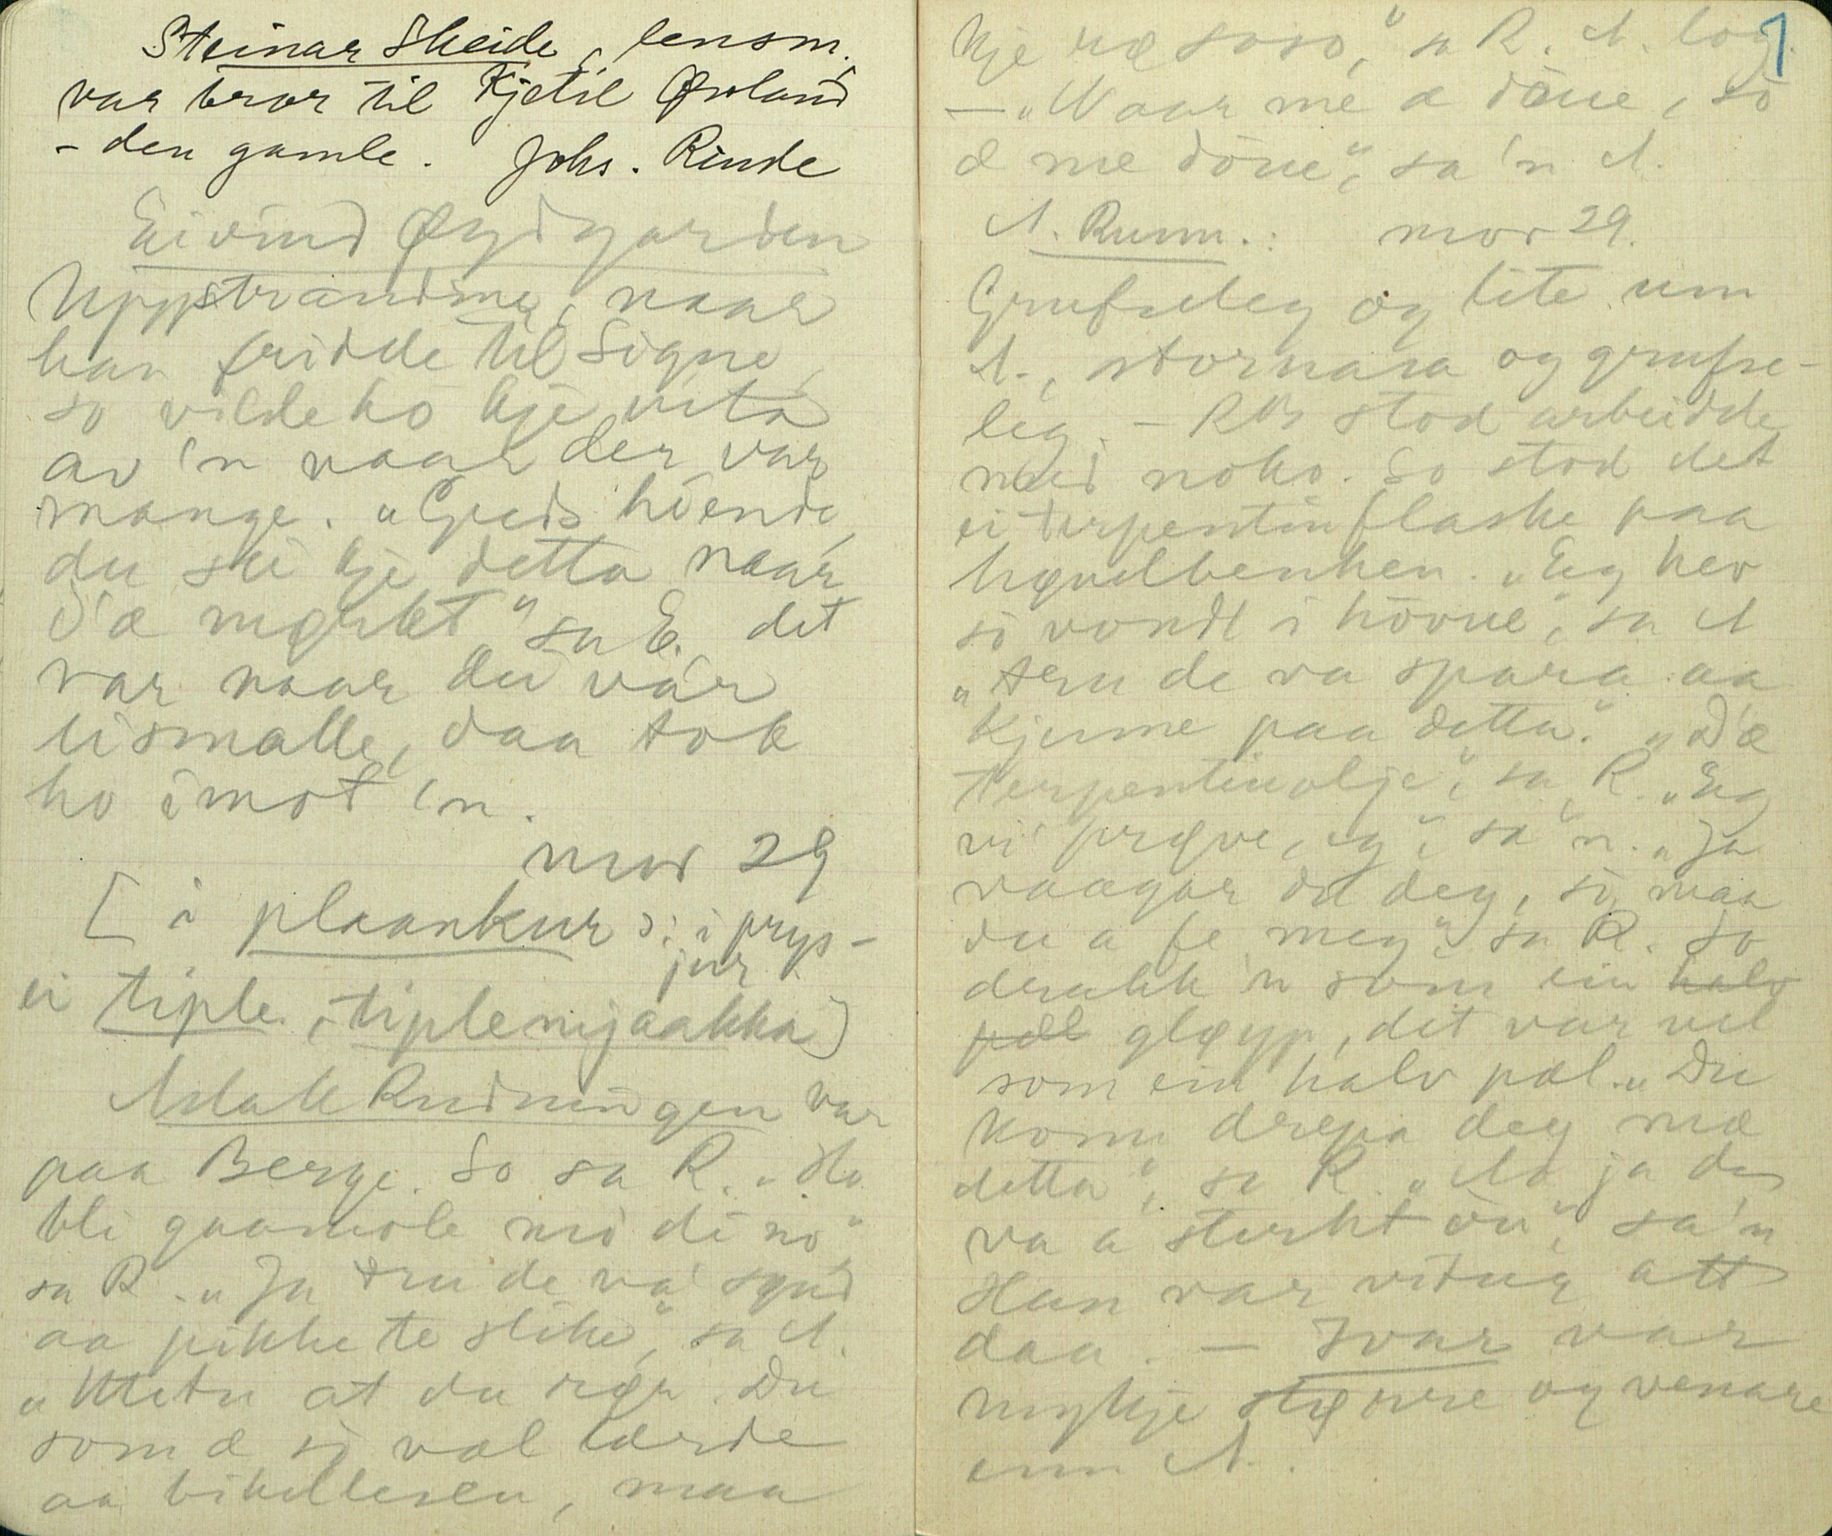 Steinar Sheide, lensm.
var bror til Kjetil Øvland
- den gamle. Johs. Rinde
Eivind Øygarden
Uppstranding, naar
han fridde til Signe,
so vilde ho kje vita
av 'n naar der var
mange. „Guds hoende,
du sei kje detta naar
d'æ mørkt" sa E. det
var naar dei var
eismalle, daa tok
ho imot 'n.
mor 29
[ i plaankur ɔ: i prys-
jur
ei tiple, tiplemjaakka]
Aslak Rudningen var
paa Berge. So sa R. „Ho
bli gaamole mo di no"
sa R. „Ja tru de va' synd
aa pikke te slike", sa A.
„ at du segr. Du
som æ so væl lærde
aa bibellesen, maa
kje so so," sa R. A. log.
— „Naar me æ döue, so
æ me döue", sa 'n A.
A. Rum.: mor 29.
Grufseleg og lite um
A., stornasa og grufse-
leg. — R stod arbeidde
med noko. So stod det
ei terpentinflaske paa
høvelbenken. „Eg hev
so vondt i hovue", sa A
„tru de va spara aa
kjenne paa detta." „D'æ
terpentinolje", sa R. „Eg
vi' prøve, eg", sa 'n. „Ja
vaagar du deg, so maa
du a fe meg" sa R. So
drakk 'n som ein halv
pæl gløyp, det var vel
som ein halv pæl. „Du
kann drepa deg mæ
detta", sa R. „Aa ja da
va a sterkt öu", sa 'n
Han var viden att
daa. — Ivar var
mykje større og venare
enn A.
1